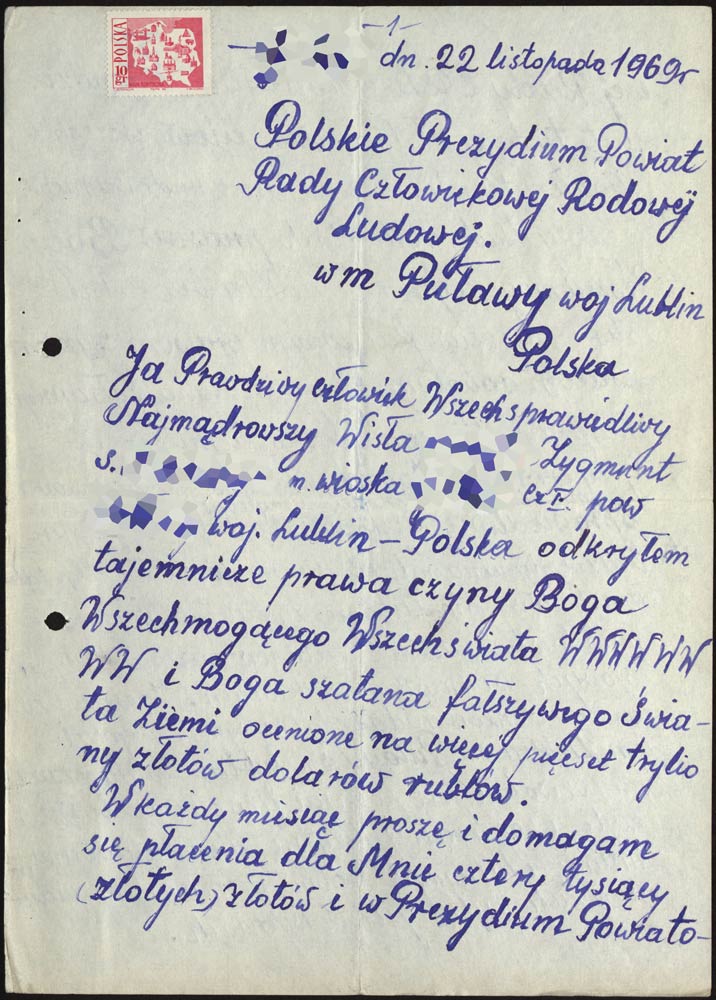 -1-
POLSKA
10 ZŁ
dn. 22 listopada 1969r
Polskie Prezydium Powiat
Rady Człowiekowej Rodowej
Ludowej.
w m Puławy woj Lublin
Polska
Ja Prawdziwy człowiek Wszechsprawiedliwy
Najmądrowszy Wisła Zygmunt
s. m. wioska cz I. pow
woj. Lublin – Polska odkryłem
tajemnicze prawa czyny Boga
Wszechmogącego Wszechświata WWWWWW
WW i Boga szatana fałszywego Świa-
ta Ziemi ocenione na więcej pięset trylio
ny złotów dolarów rublów.
W każdy miesiąc proszę i domagam
się płacenia dla Mnie cztery tysiący
(złotych) złotów i w Prezydium Powiato-